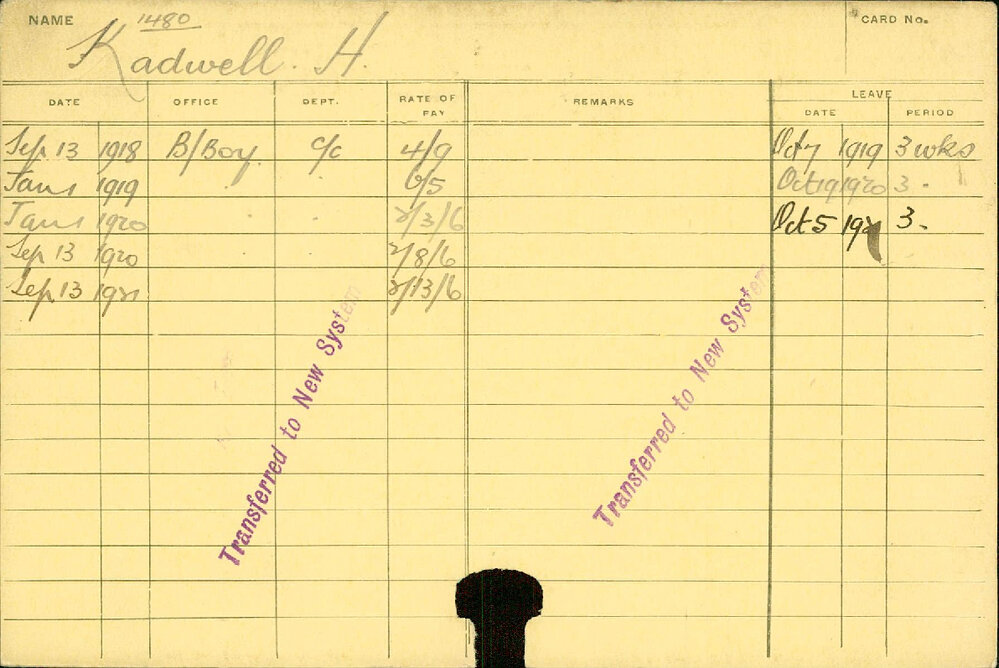 NAME 1480 CARD No.
Kadwell. H.
DATE OFFICE DEPT. RATE OF PAY REMARKS LEAVE
DATE PERIOD
Sep 13 1918 B/Boy. c/c 4/9 Oct 7 1919 3 wks
Jan 1 1919 " " 6/5 Oct 19 1920 3 "
Jan 1 1920 " " 2/3/6 Oct 5 1921 3 "
Sep 13 1920 2/8/6
Sep 13 1921 2/13/6
Transferred to New System
Transferred to New System